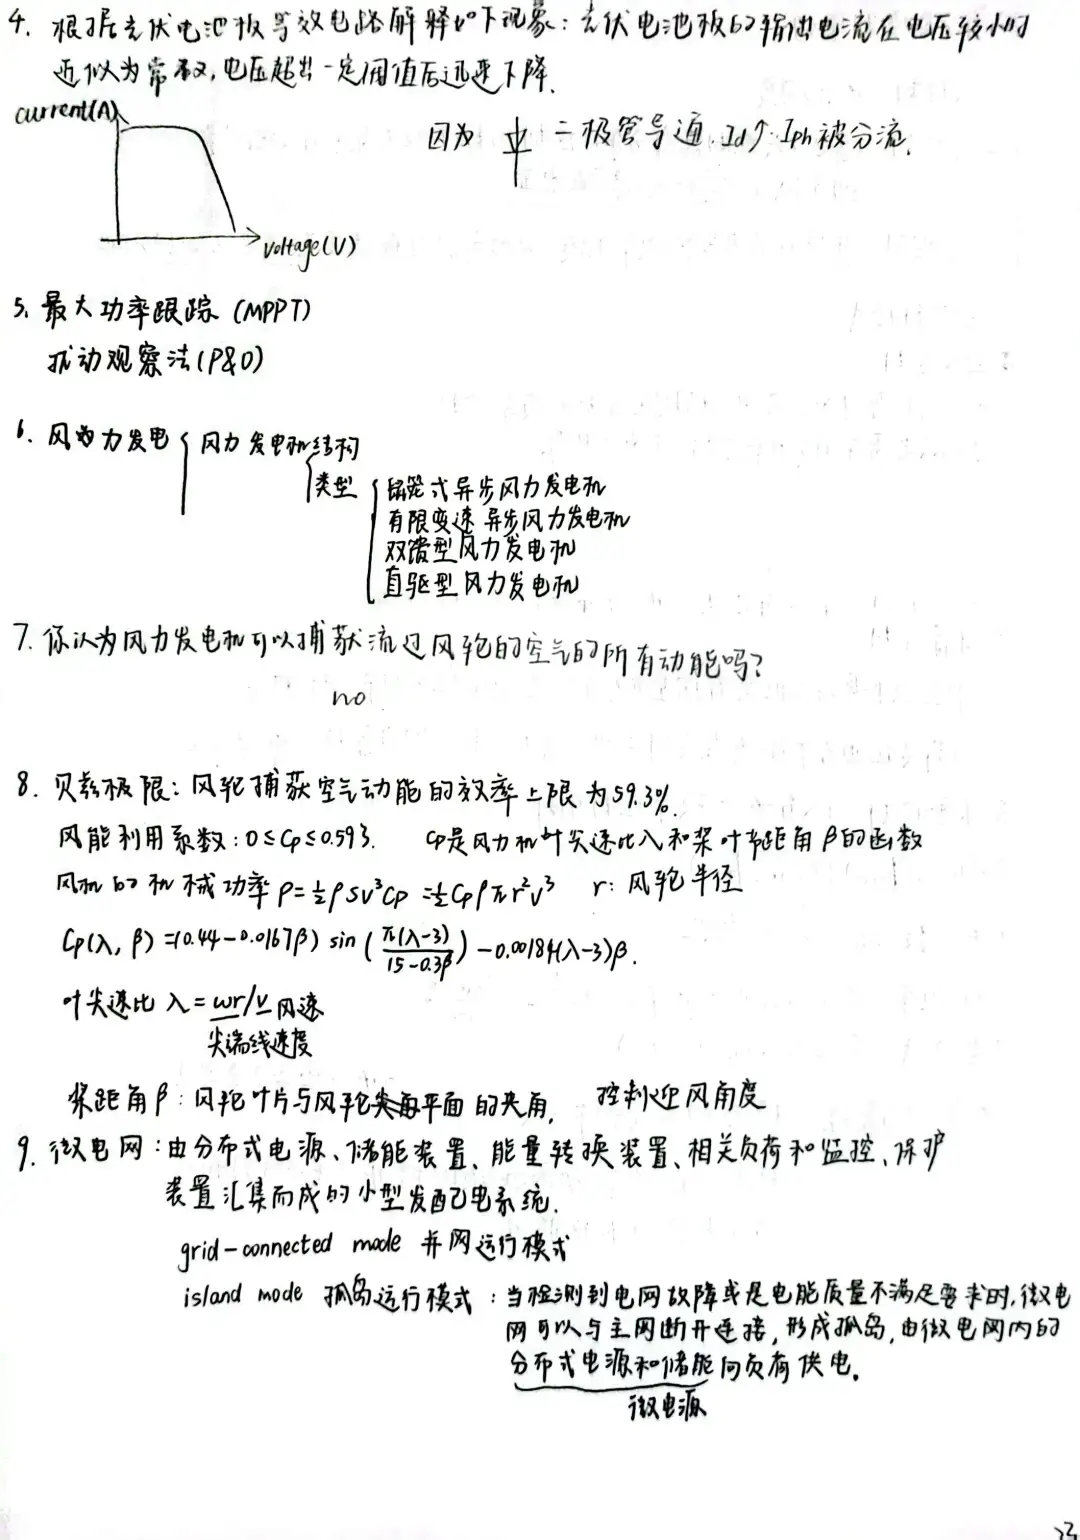 4. 根据光伏电池板等效电路解释如下现象：光伏电池板的输出电流在电压较小时
近似为常数，电压超出一定阈值后迅速下降.
current(A)
因为 二极管导通，Id↑ Iph被分流.
voltage(V)
5. 最大功率跟踪 (MPPT)
扰动观察法(P&O)
6. 风力发电 { 风力发电机结构
类型 { 鼠笼式异步风力发电机
有限变速异步风力发电机
双馈型风力发电机
直驱型风力发电机
7. 你认为风力发电机可以捕获流过风轮的空气的所有动能吗？
no
8. 贝兹极限：风轮捕获空气动能的效率上限为59.3%.
风能利用系数：0≤Cp≤0.593. Cp是风力机叶尖速比λ和桨叶节距角β的函数
风机的机械功率 P=½ρSv³Cp =½Cpρπr²v³ r：风轮半径
Cp(λ, β) =(0.44-0.0167β) sin (π(λ-3)/15-0.3β) -0.00184(λ-3)β.
叶尖速比 λ=wr/v 风速
尖端线速度
桨距角β：风轮叶片与风轮平面的夹角. 控制迎风角度
9. 微电网：由分布式电源、储能装置、能量转换装置、相关负荷和监控、保护
装置汇集而成的小型发配电系统.
grid-connected mode 并网运行模式
island mode 孤岛运行模式：当检测到电网故障或是电能质量不满足要求时，微电
网可以与主网断开连接，形成孤岛，由微电网内的
分布式电源和储能向负荷供电。
微电源